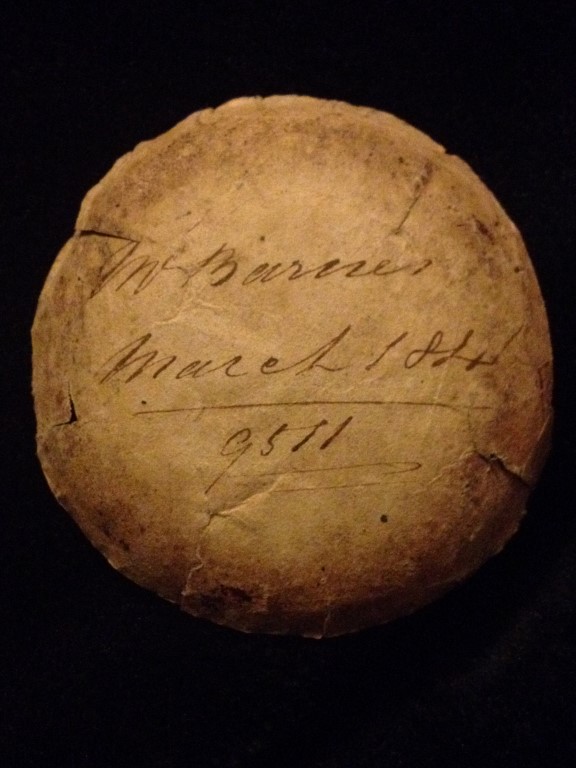 Mr Barnes
March 184
9511